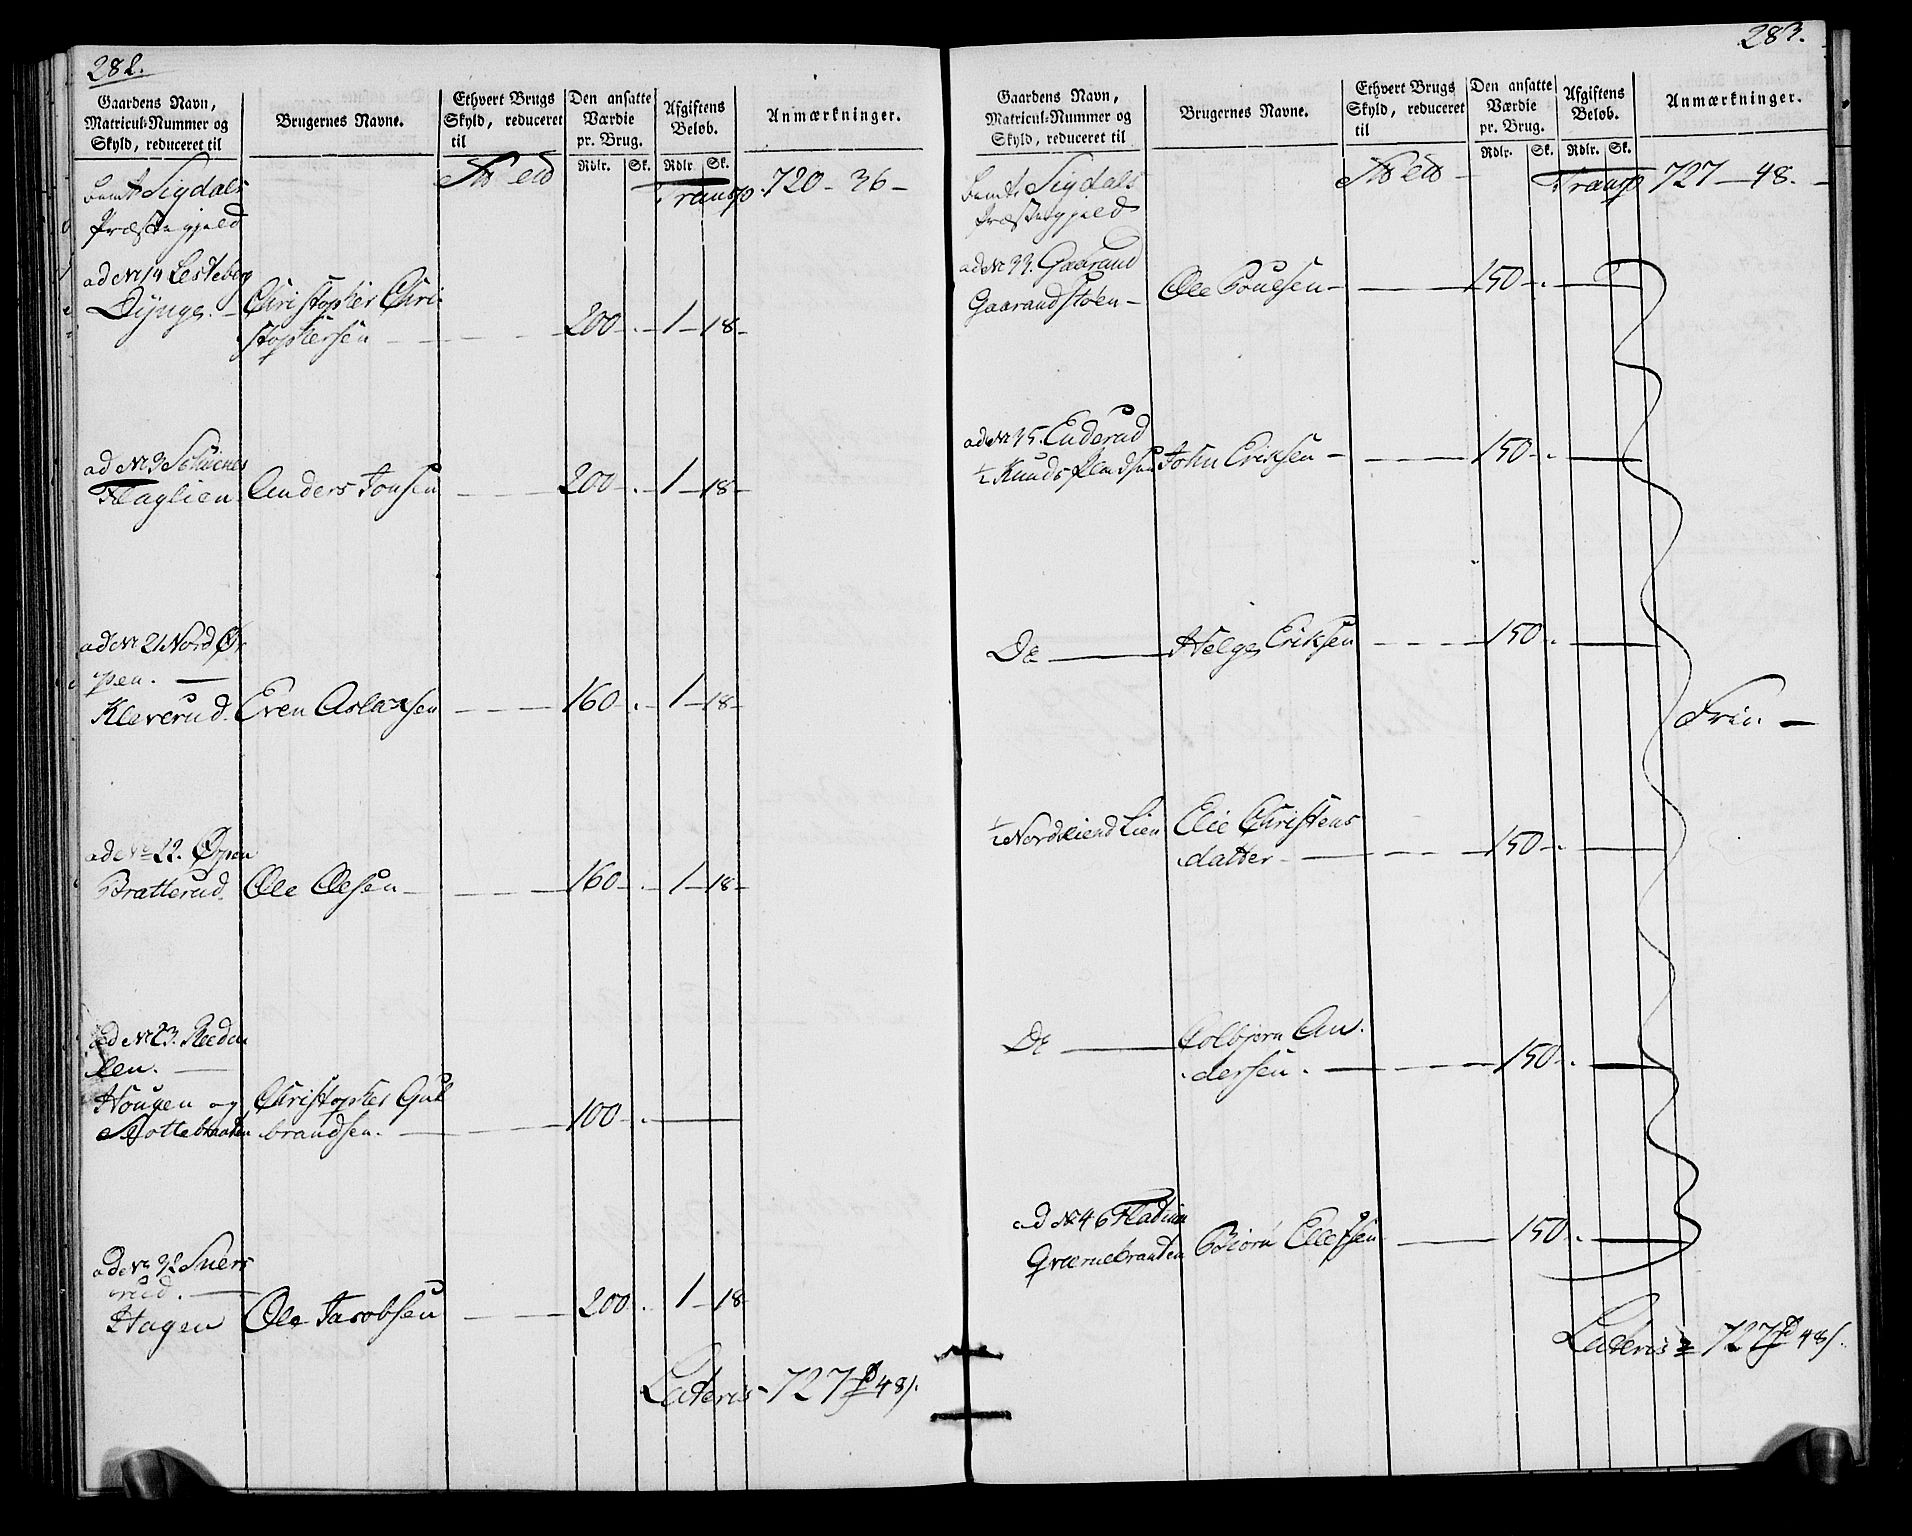 282.
Gaardens Navn, Matricul-Nummer og Skyld, reduceret til
Brugernes Navne.
Ethvert Brugs Skyld, reduceret til
Den ansatte Værdie pr. Brug.
Rdlr. Sk.
Afgiftens Beløb.
Rdlr. Sk.
Anmærkninger.
Sigdals Transp. 720 - 36 -
Præstegjeld
ad No 14 Lesteberg
Dynge. - Christopher Chri-
stophersen - 200 - . - 1 - 18 -
ad No 3
Haglien Anders Jonsen - 200 - . - 1 - 18 -
ad No 21 Nord Ør-
pen. -
Kleverud. Even Aslaksen - 160 - . - 1 - 18 -
ad No 22. Ørpen
Bratterud. Ole Olsen - 160 - . - 1 - 18 -
ad No 23.
len. -
Hougen og Christopher Gul
brandsen. - 100 - . -
ad No 32
rud. -
Hagen Ole Jacobsen - 200 . 1 - 18 -
Lateris - 727 48 s.
283.
Gaardens Navn, Matricul-Nummer og Skyld, reduceret til
Brugernes Navne.
Ethvert Brugs Skyld, reduceret til
Den ansatte Værdie pr. Brug.
Rdlr. Sk.
Afgiftens Beløb.
Rdlr. Sk.
Anmærkninger.
Sigdals Transp 727 - 48. -
Præstegjeld
ad No 33. Gaarand
Gaarandstøen - Ole Poulsen - 150 - . -
ad No 35. Enderud
1/2 John Eriksen - 150 - . -
Do - Helge Eriksen - 150 - . -
Fri. -
1/2 Lien Elie Christens
datter - 150 - . -
Do - Colbjørn An-
dersen. - 150 - . -
ad No 46
Qværnebraaten Biørn Ellefsen - 150 - . -
Lateris = 727 48 s.